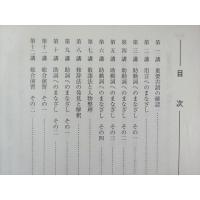 目次
第一講 重要古語の確認
第二講 用言へのまなざし
第三講 助動詞へのまなざし その一
第四講 助動詞へのまなざし その二
第五講 助動詞へのまなざし その三
第六講 助動詞へのまなざし その四
第七講 敬語法と人物整理
第八講 和歌の発見と解釈
第九講 助詞へのまなざし その一
第十講 助詞へのまなざし その二
第十一講 総合演習 その一
第十二講 総合演習 その二